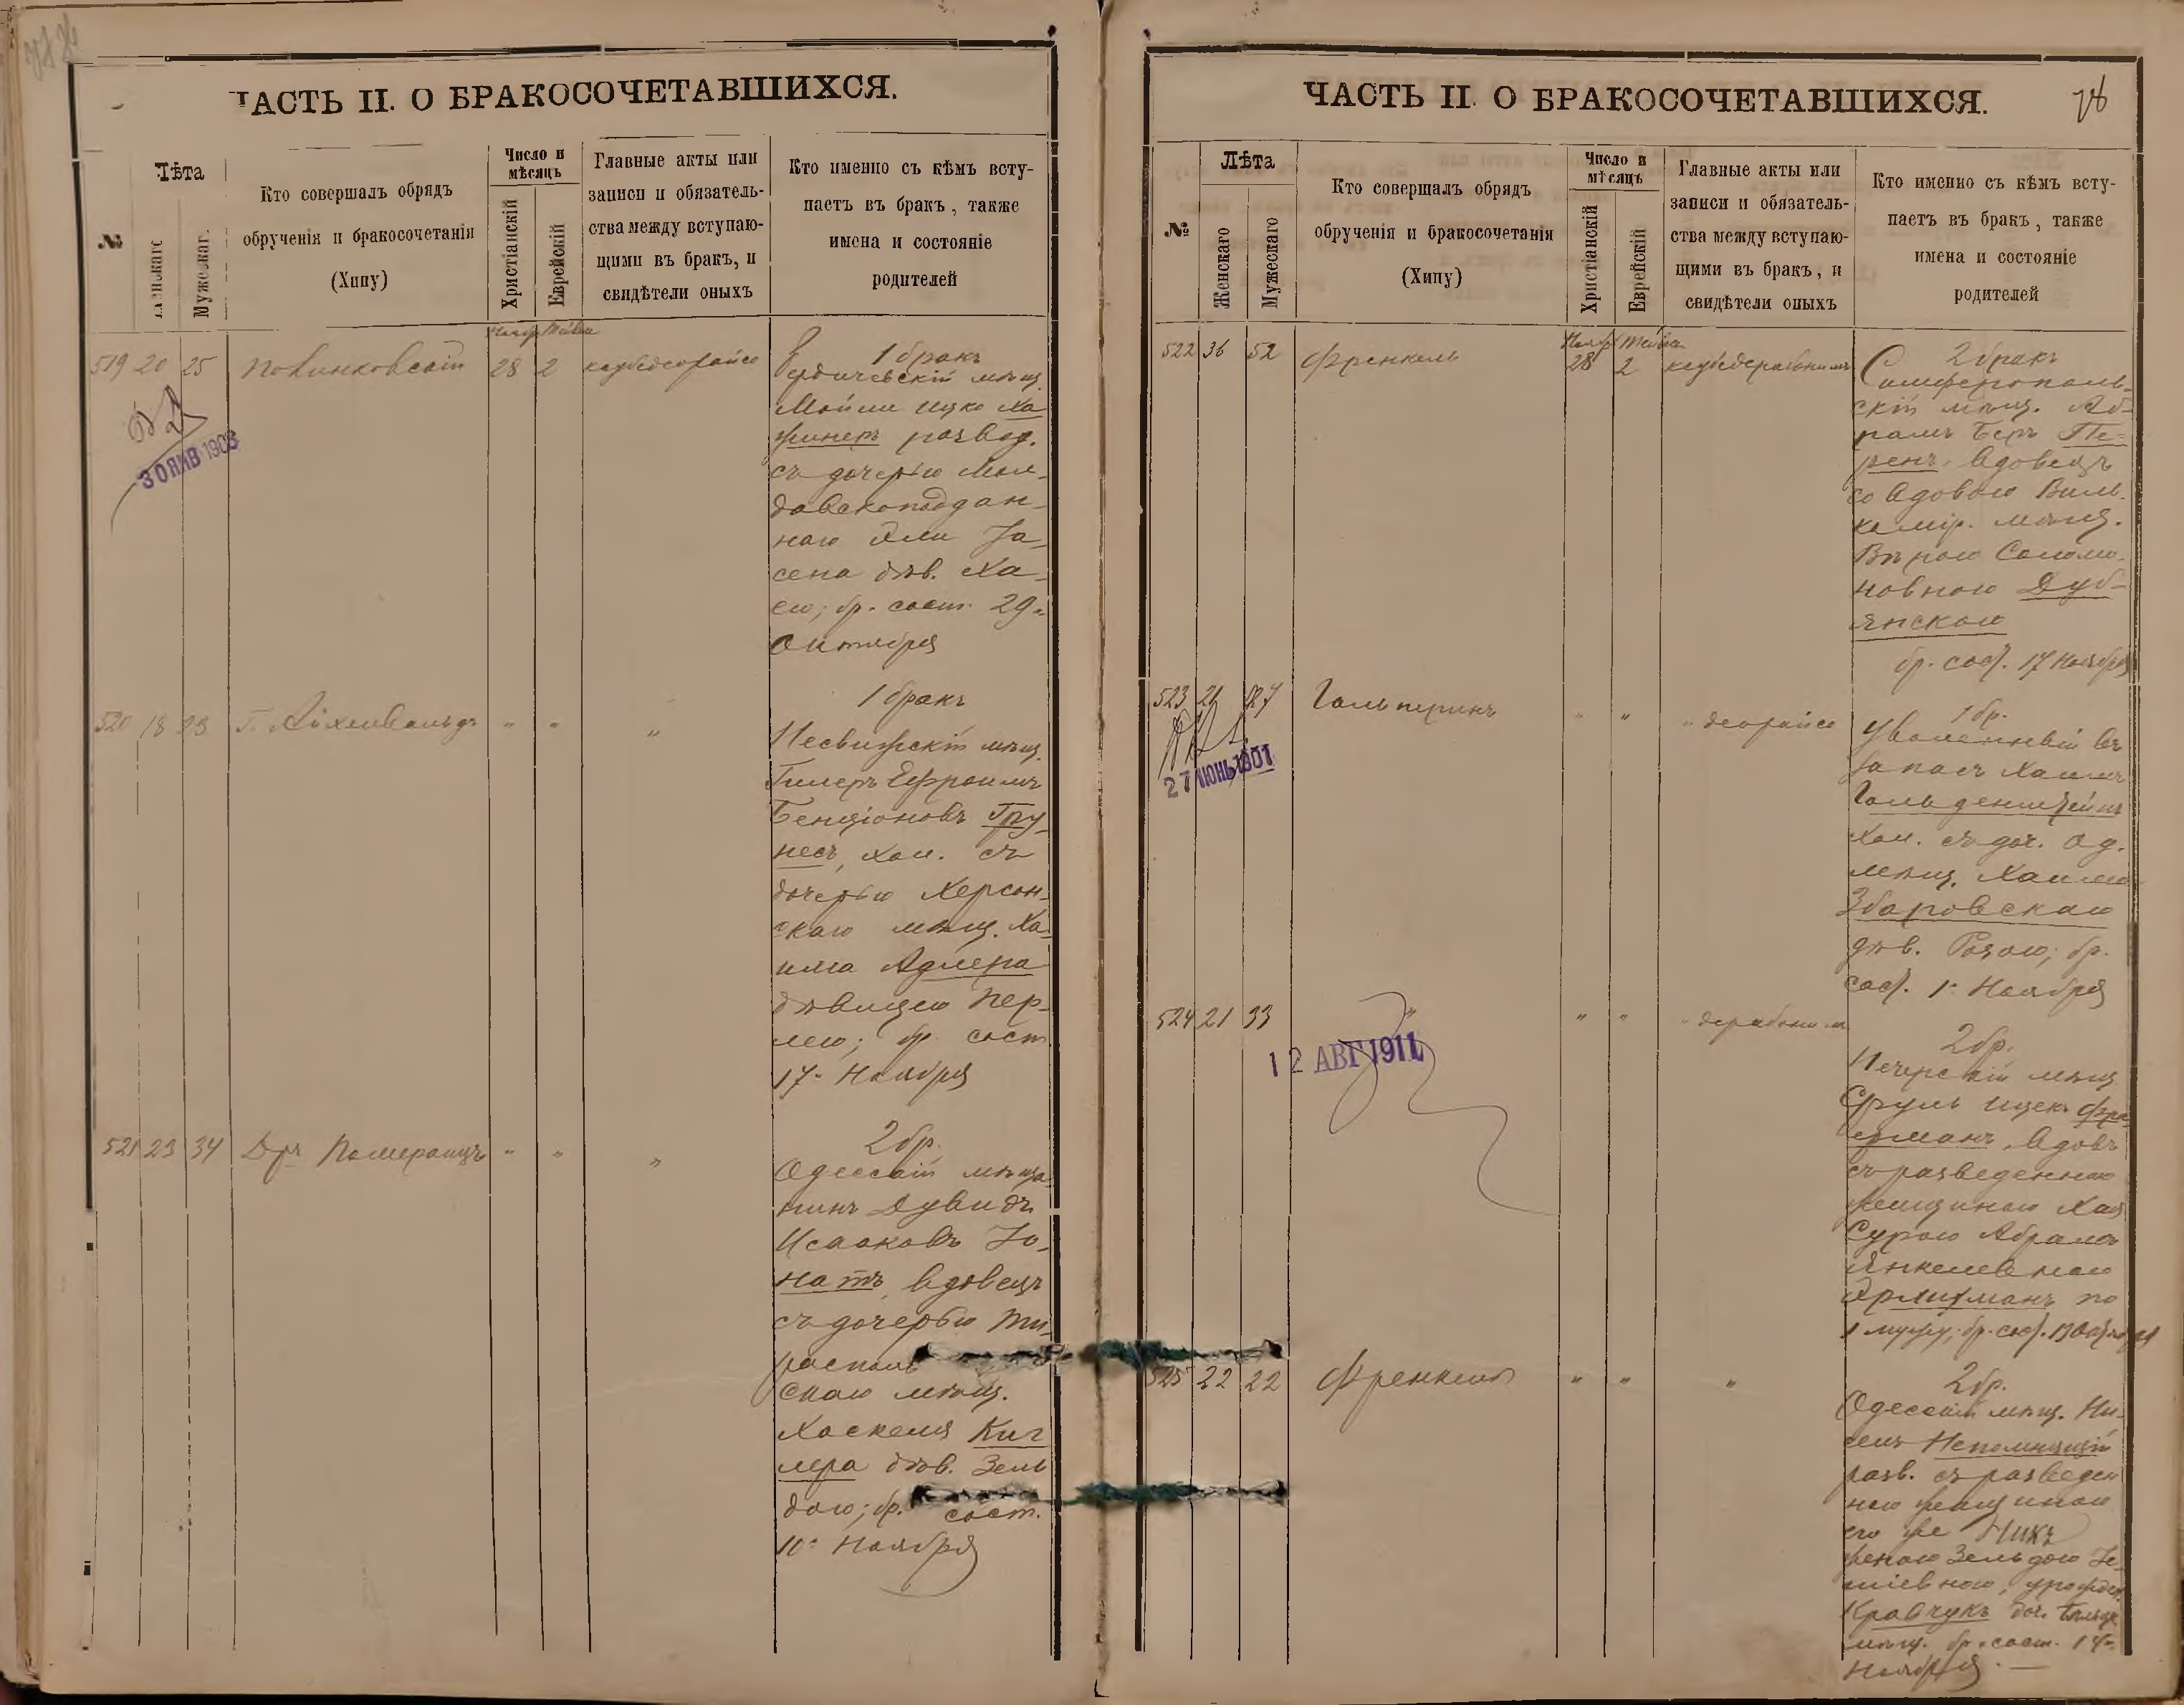 ЧАСТЬ II. О БРАКОСОЧЕТАВШИХСЯ.
№
Лѣта
Женскаго
Мужескаго
Кто совершалъ обрядъ
обрученія и бракосочетанія
(Хипу)
Число и
мѣсяцъ
Христіанскій
Еврейскій
Главные акты или
записи и обязатель-
ства между вступаю-
щими въ бракъ, и
свидѣтели оныхъ
Кто именно съ кѣмъ всту-
паетъ въ бракъ, также
имена и состояніе
родителей
519 20 25
28 2
30 ЯНВ 1903
1 бракъ
Бердичевскій мѣщ.
Мойше Ицко Ха
развед.
съ дочерью Мол-
давскоподдан-
наго
дѣв. Ха-
ею; бр. сост. 29.
Октября
520 18 23 Г. Айхенвальдъ " " "
1 бракъ
Несвижскій мѣщ.
Гилеръ Ефроимъ
Бенціоновъ Гру-
несъ, хол. съ
дочерью Херсон-
скаго мѣщ. Ха-
има Адлера
дѣвицею Пер-
лею; бр. сост.
17- Ноября
521 23 34 Дръ Померанцъ " " "
2 бр.
Одесскій мѣща-
нинъ Дувидъ
Исааковъ Іо-
натъ, вдовецъ
съ дочерью Ти-
располь
скаго мѣщ.
Хаскеля Киг
лера дѣв. Зель
дою; бр. сост.
10- Ноября
ЧАСТЬ II. О БРАКОСОЧЕТАВШИХСЯ.
78
№
Лѣта
Женскаго
Мужескаго
Кто совершалъ обрядъ
обрученія и бракосочетанія
(Хипу)
Число и
мѣсяцъ
Христіанскій
Еврейскій
Главные акты или
записи и обязатель-
ства между вступаю-
щими въ бракъ, и
свидѣтели оныхъ
Кто именно съ кѣмъ всту-
паетъ въ бракъ, также
имена и состояніе
родителей
522 36 52 Френкель 28 2
2 бракъ
Симферополь-
скій мѣщ. Аб-
рамъ Беръ Пе-
ренъ, вдовецъ
со вдовою Виль-
комір. мѣщ.
Вѣрою Соломо-
новною Дуб-
янскою
бр. сост. 17 Ноября
523 21 27 Гальперинъ " " " деорайсе
27 ИЮНЬ 1901
1 бр.
Уволенный въ
запасъ Хаимъ
Гольденштейнъ
хол. съ доч. Од.
мѣщ. Хаима
Збаровскаго
дѣв. Розою; бр.
сост. 1- Ноября
524 21 33 " " " "
12 АВГ 1911
2 бр.
Печерскій мѣщ
Сруль Ицекъ Фра-
ерманъ, вдовъ
съ разведенною
женщиною Хая
Сурою Абрамъ
Янкелевною
по
1 мужу; бр. сост.
525 22 22 Френкель " " "
2 бр.
Одесскій мѣщ. Ни-
сень Непомнящій
разв. съ разведен
ною женщиною
его же
женою Зельдою
урожден.
Кравчукъ доч.
мѣщ. бр. сост. 14-
Ноября. —